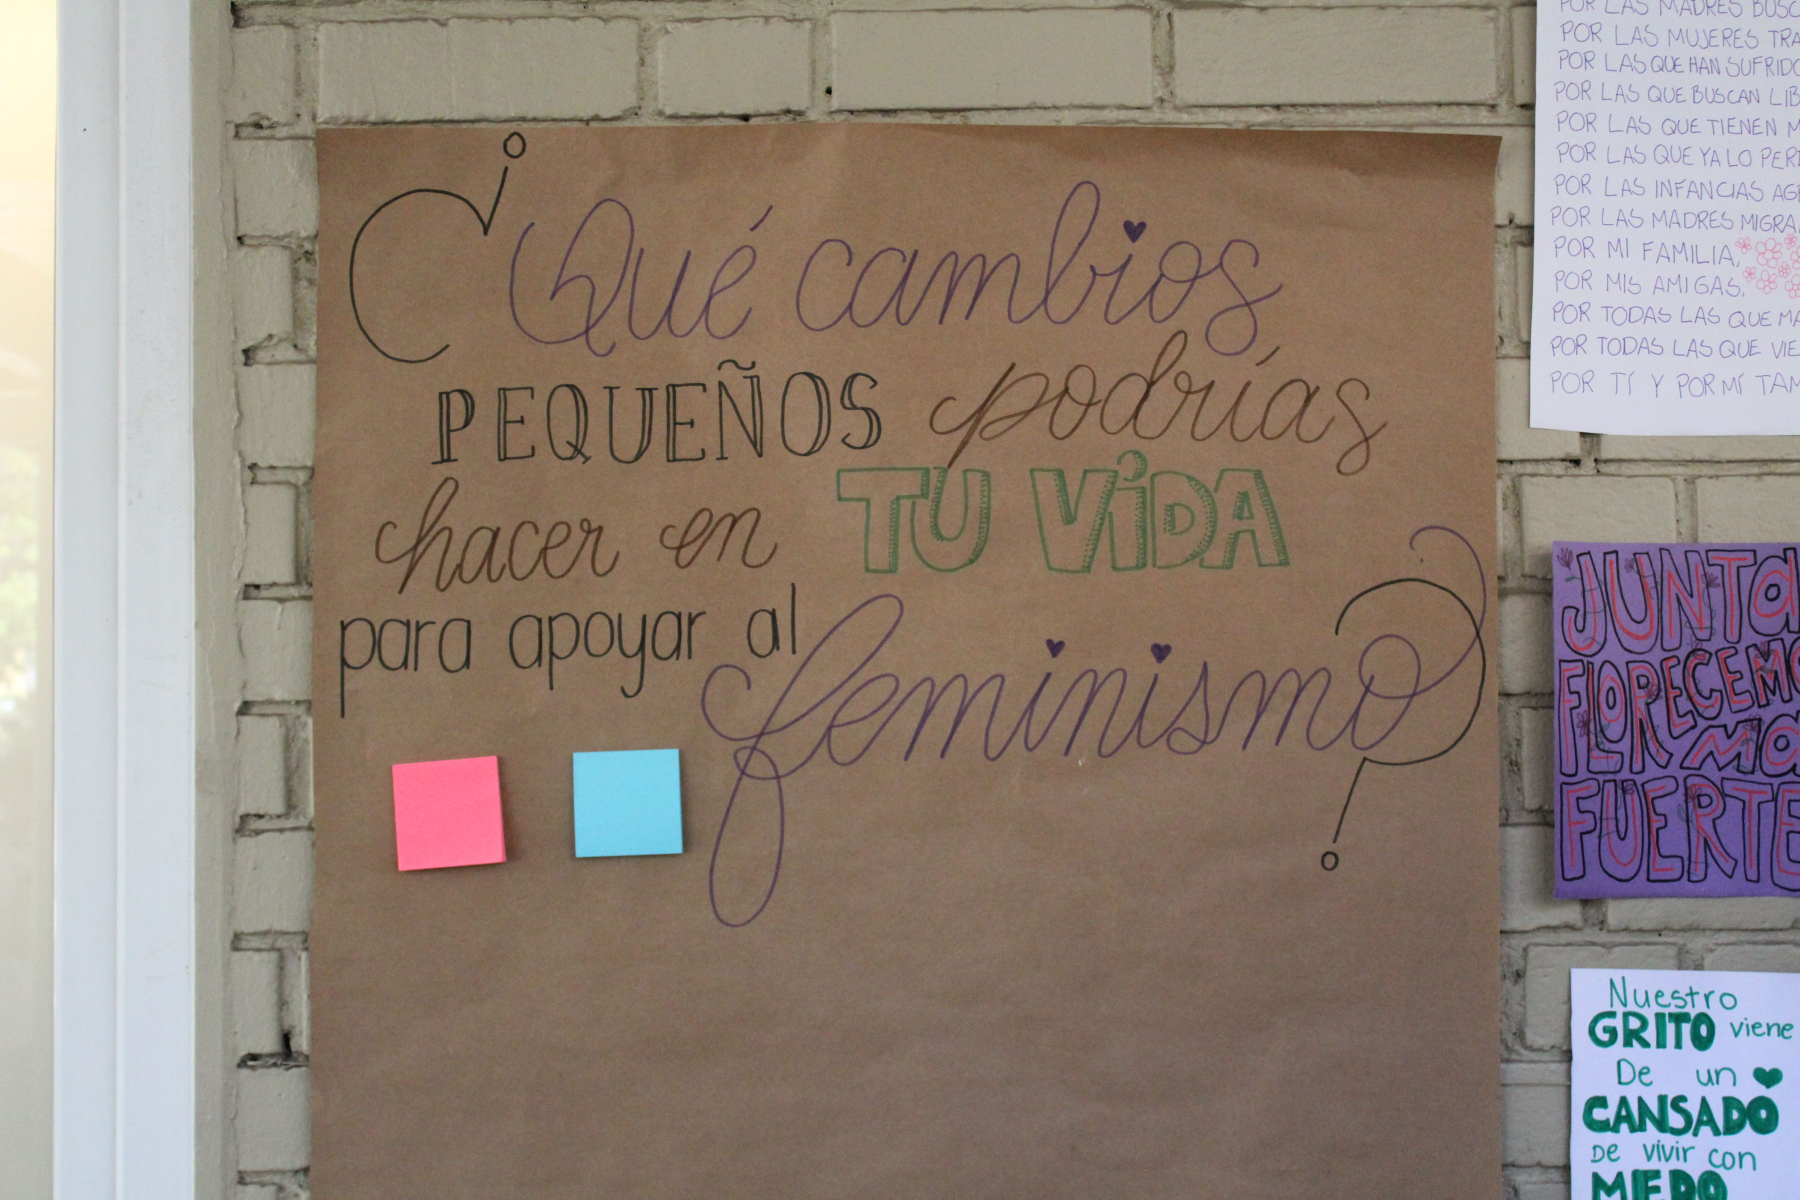 ¿Qué cambios
PEQUEÑOS podrías
hacer en TU ViDA
para apoyar al
feminismo?
POR LAS MADRES
POR LAS MUJERES
POR LAS QUE HAN SUFRIDO
POR LAS QUE BUSCAN
POR LAS QUE TIENEN
POR LAS QUE YA LO
POR LAS INFANCIAS
POR LAS MADRES
POR MI FAMILIA,
POR MIS AMIGAS,
POR TODAS LAS QUE
POR TODAS LAS QUE
POR TÍ Y POR MÍ
JUNTA
FLORECEMO
MA
FUERTE
Nuestro
GRITO viene
De un
CANSADO
DE vivir con
MIEDO